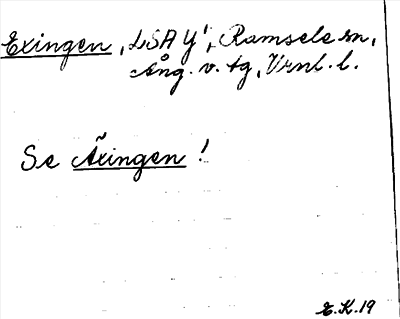 Exingen, "LSA Y", Ramsele sn,
Ång. v. tg, Vrnl. l.
Se Äxingen!
E.K.19